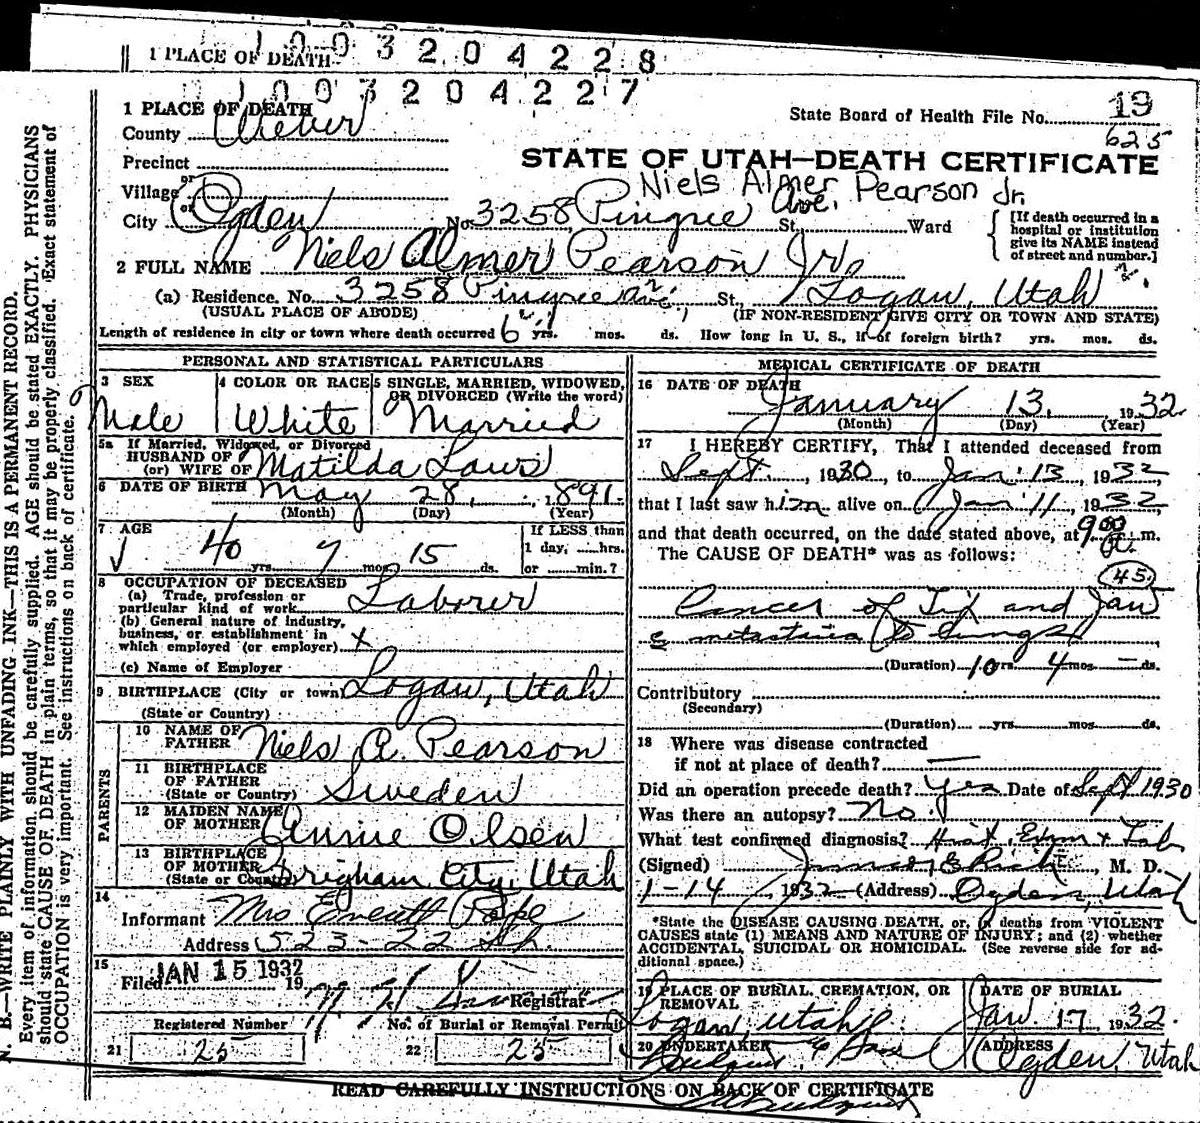 1 PLACE OF DEATH
1003204228
1003204227
1 PLACE OF DEATH
County Weber
State Board of Health File No. 19
625
Precinct
or
Village
or
City Ogden
STATE OF UTAH—DEATH CERTIFICATE
Niels Almer Pearson Jr.
No. 3258 Pingree Ave. St. Ward
[If death occurred in a
hospital or institution
give its NAME instead
of street and number.]
2 FULL NAME Niels Almer Pearson Jr.
(a) Residence. No. 3258 Pingree Ave., St., Logan, Utah
(USUAL PLACE OF ABODE) (IF NON-RESIDENT GIVE CITY OR TOWN AND STATE)
Length of residence in city or town where death occurred 6 yrs. mos. ds. How long in U. S., if of foreign birth? yrs. mos. ds.
PERSONAL AND STATISTICAL PARTICULARS
3 SEX
Male
4 COLOR OR RACE
White
5 SINGLE, MARRIED, WIDOWED,
OR DIVORCED (Write the word)
Married
5a If Married, Widowed, or Divorced
HUSBAND OF
(or) WIFE OF Matilda Laws
6 DATE OF BIRTH May 28, 1891.
(Month) (Day) (Year)
7 AGE
40 yrs. 7 mos. 15 ds.
If LESS than
1 day, hrs.
or min.?
8 OCCUPATION OF DECEASED
(a) Trade, profession or
particular kind of work Laborer
(b) General nature of industry,
business, or establishment in
which employed (or employer) x
(c) Name of Employer
9 BIRTHPLACE (City or town) Logan, Utah
(State or Country)
PARENTS
10 NAME OF
FATHER Niels A. Pearson
11 BIRTHPLACE
OF FATHER
(State or Country) Sweden
12 MAIDEN NAME
OF MOTHER Annie Olsen
13 BIRTHPLACE
OF MOTHER
(State or Country) Brigham City, Utah
14
Informant Mrs Everett Pope
Address 523-22 St.
15
Filed JAN 15 1932 19
Registrar
Registered Number
21 25
No. of Burial or Removal Permit
22 25
MEDICAL CERTIFICATE OF DEATH
16 DATE OF DEATH
January 13, 1932
(Month) (Day) (Year)
17 I HEREBY CERTIFY, That I attended deceased from
Sept. 1930, to Jan. 13, 1932
that I last saw him alive on Jan 11, 1932
and that death occurred, on the date stated above, at 9:00 a. m.
The CAUSE OF DEATH* was as follows:
45.
Cancer of Lip and Jaw
c metastasis to lungs
(Duration) 10 yrs. 4 mos. — ds.
Contributory
(Secondary)
(Duration) yrs. mos. ds.
18 Where was disease contracted
if not at place of death? —
Did an operation precede death? Yes Date of Sept 1930
Was there an autopsy? No.
What test confirmed diagnosis? Hist. Exam & Lab
(Signed) M. D.
1-14 1932 (Address) Ogden, Utah
*State the DISEASE CAUSING DEATH, or, in deaths from VIOLENT
CAUSES state (1) MEANS AND NATURE OF INJURY; and (2) whether
ACCIDENTAL, SUICIDAL OR HOMICIDAL. (See reverse side for ad-
ditional space.)
19 PLACE OF BURIAL, CREMATION, OR
REMOVAL
Logan, Utah
DATE OF BURIAL
Jan. 17 1932.
20 UNDERTAKER
ADDRESS
Ogden, Utah
READ CAREFULLY INSTRUCTIONS ON BACK OF CERTIFICATE
N. B.—WRITE PLAINLY WITH UNFADING INK—THIS IS A PERMANENT RECORD.
Every item of information should be carefully supplied. AGE should be stated EXACTLY. PHYSICIANS
should state CAUSE OF DEATH in plain terms, so that it may be properly classified. Exact statement of
OCCUPATION is very important. See instructions on back of certificate.